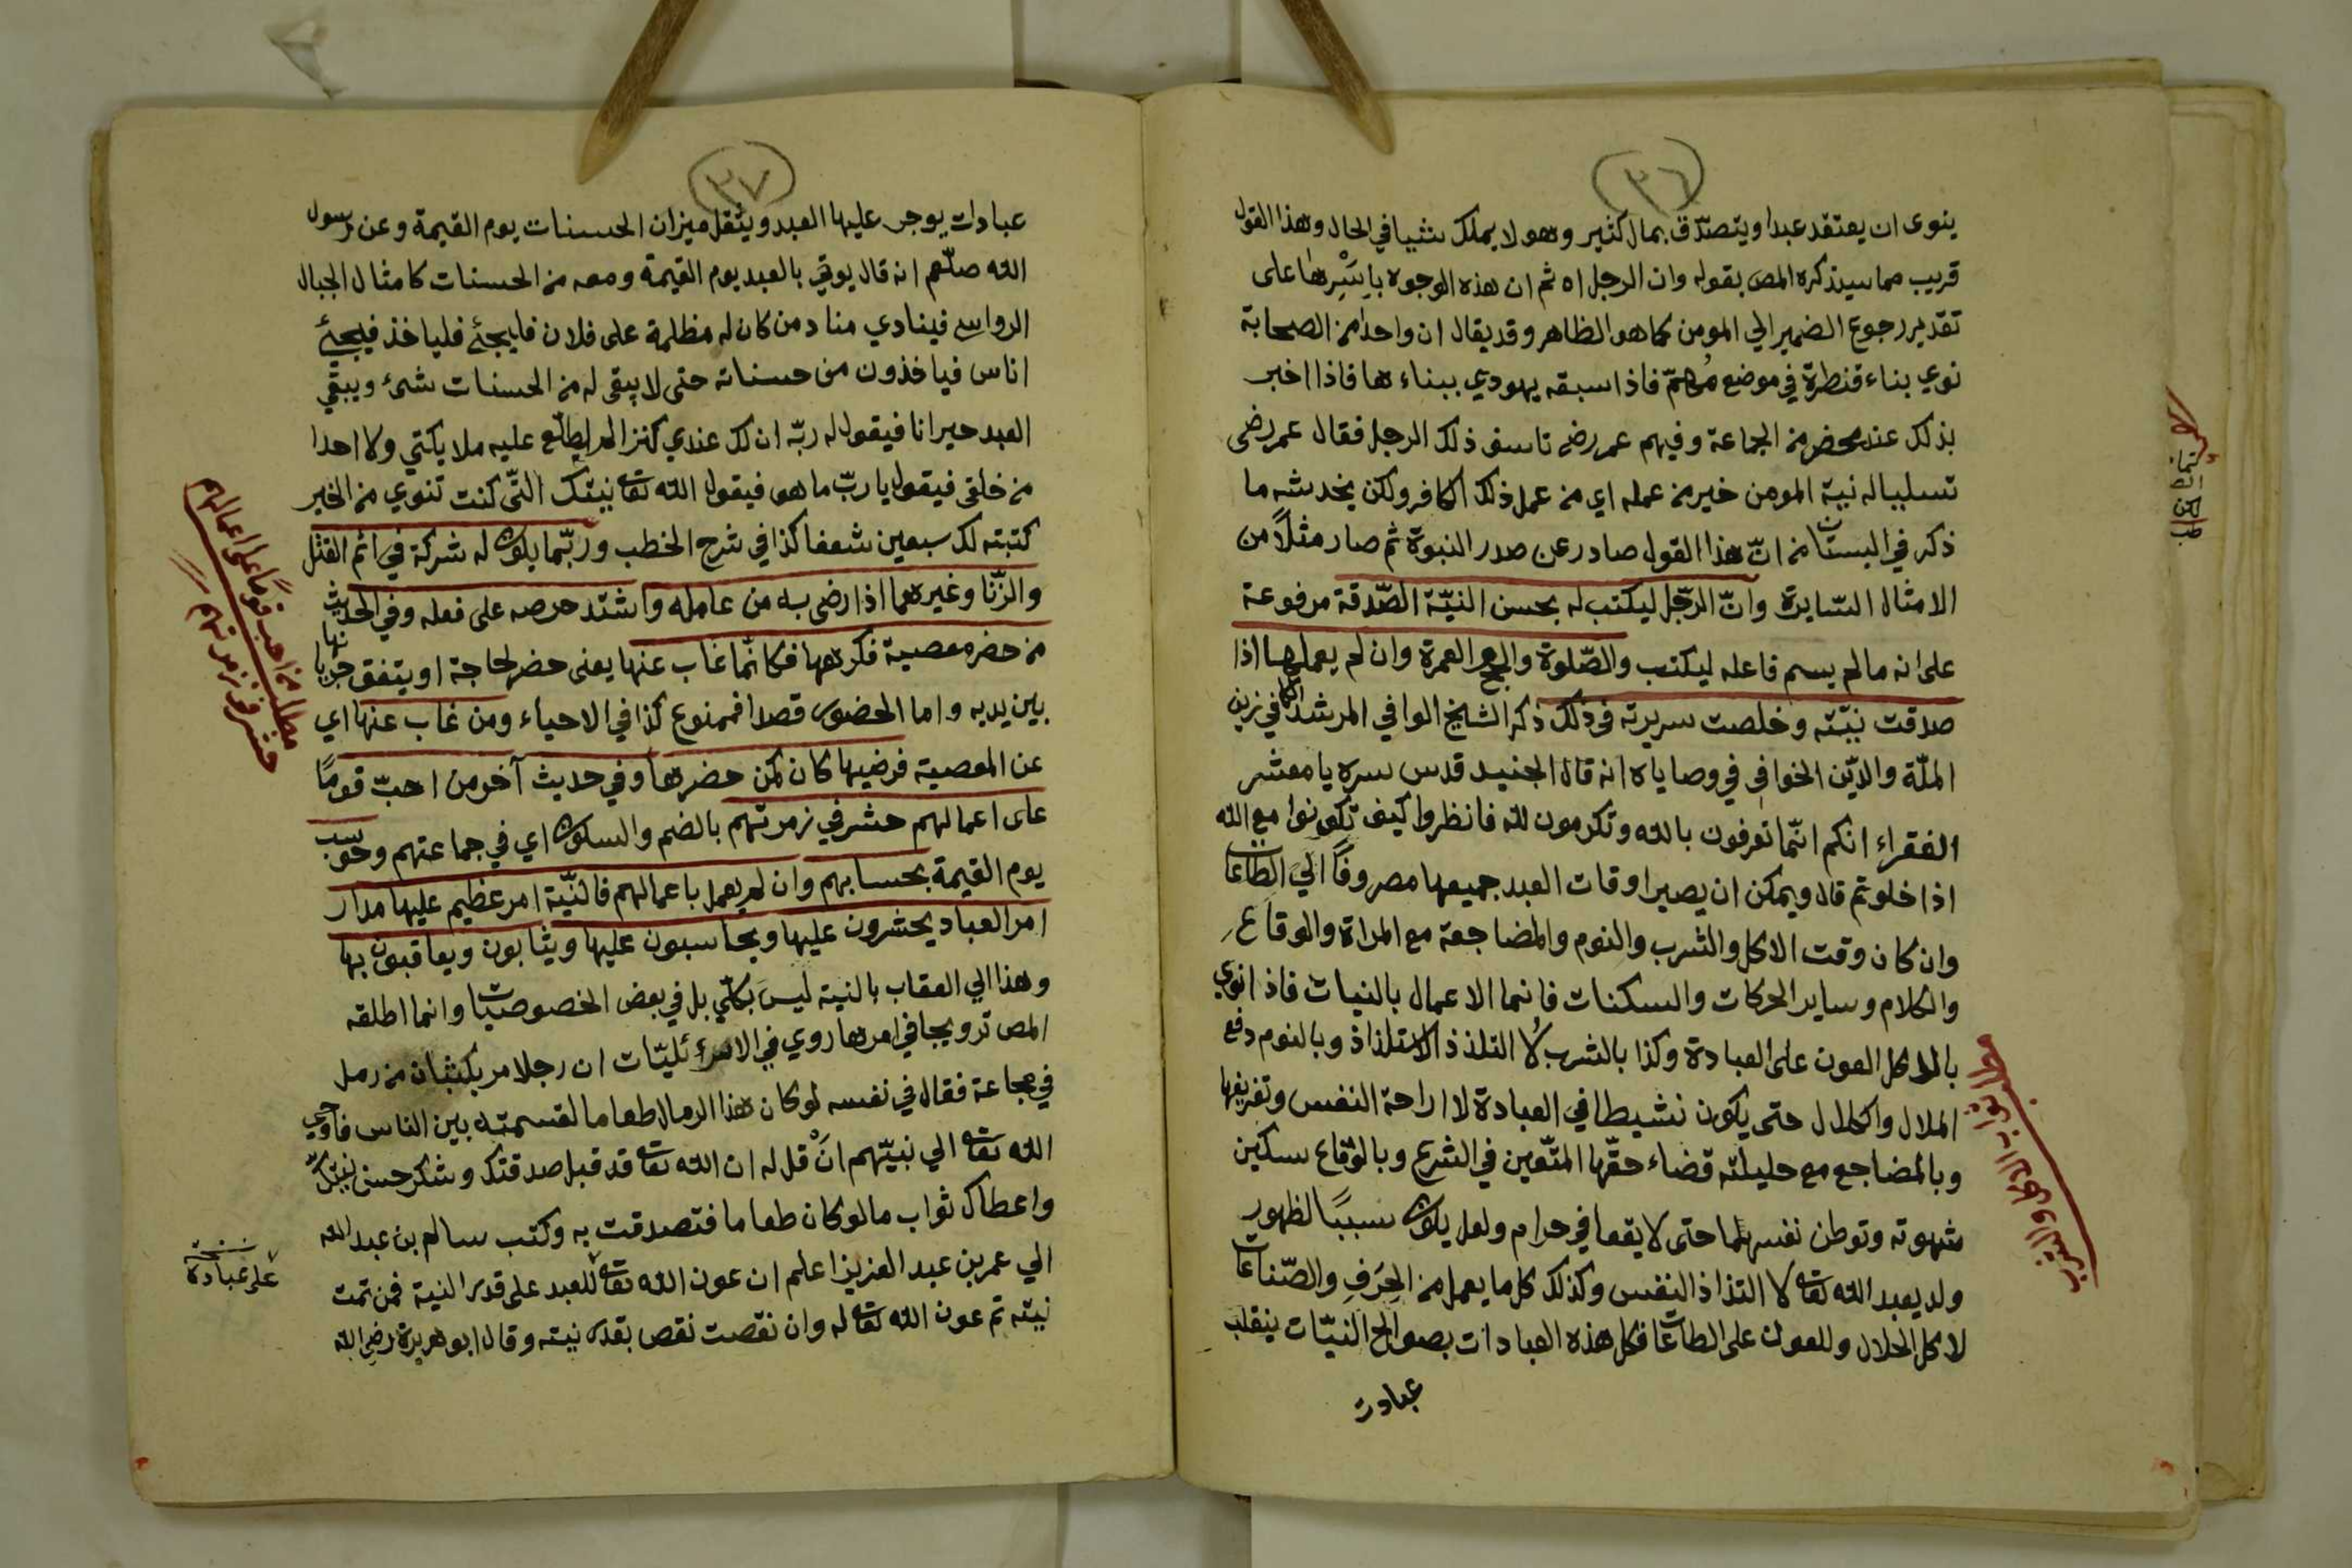 ٣٦
ينوى ان يعتقد عبدا ويتصدّق بمال كثير وهو لا يملك شيئا في الحال وهذا القول
قريب مما سيذكره المص بقوله وان الرجل اه ثم ان هذه الوجوه باَسْرِها على
تقدير رجوع الضمير الي المومن كما هو الظاهر وقد يقال ان واحدا من الصحابة
نوي بناء قنطرة في موضع مُهمّ فاذا سبقه يهودي ببناءها فاذا اخبر
بذلك عند محضر من الجماعة وفيهم عمر رضى تاسف ذلك الرجل فقال عمر رضى
تسليا له نية المومن خير من عمله اي من عمل ذلك الكافر ولكن يخدشه ما
ذكر في البستان من انّ هذا القول صادر عن صدر النبوة ثم صار مثلاً من
الامثال السّايرة وانّ الرّجل ليكتب له بحسن النيّة الصّدقة مرفوعة
على انه مالم يسم فاعله ليكتب والصّلوة والحج والعمرة وان لم يعملها اذا
صدقت نيّته وخلصت سريرته في ذلك ذكر الشايخ الوافي المرشد الكافي زين
الملّة والدّين الخوافي في وصاياه انه قال الجنيد قدس سره يا معشر
الفقراء انكم انّما تعرفون بالله وتكرمون لله فانظروا كيف تكونوا مع الله
اذا خلوتم قال ويمكن ان يصير اوقات العبد جميعها مصروفًا الي الطاعات
وان كان وقت الاكل والشرب والنوم والمضاجعة مع المراة والوقاع
والكلام وساير الحركات والسكنات فانما الاعمال بالنيات فاذا نوي
بالاكل العون على العبادة وكذا بالشرب لا التلذذ والاستلذاذ وبالنوم دفع
الملال والكلال حتى يكون نشيطا في العبادة لا اراحة النفس وتفريغها
وبالمضاجع مع حليلته قضاء حقّها المتّعين في الشرع وبالوقاع سكين
شهوته وتوطن نفسهما حتى لا يقعا في حرام ولعل يكون سببًا لظهور
ولد يعبد الله تعا لا التذاذ النفس وكذلك كل ما يعمل من الحِرَفِ والصّناعات
لاكل الحلال وللعون على الطاعات فكل هذه العبادات بصوالح النيّات ينقلب
عبادت
٣٧
عبادات يوجر عليها العبد ويثقل ميزان الحسنات يوم القيمة وعن رسول
الله صلّعم انه قال يوتي بالعبد يوم القيمة ومعه من الحسنات كامثال الجبال
الرواسي فينادي مناد من كان له مظلمة على فلان فليجئ فلياخذ فيجئ
اناس فياخذون من حسناته حتى لا يبقى له من الحسنات شئ ويبقي
العبد حيرانا فيقول له ربّه ان لك عندي كنزا لم يطلّع عليه ملايكتي ولا احدا
من خلقى فيقول يا ربّ ما هو فيقول الله تعا نيتك التّى كنت تنوي من الخير
كتبته لك سبعين ضعفا كذا في شرح الخطب وربّما يكون له شركة في اثم القتل
والزّنا وغيرهما اذا رضى به من عامله واشتد حرصه على فعله وفي الحديث
من حضر معصية فكرهها فكانّما غاب عنها يعنى حضر لحاجة او يتفق جريانها
بين يديه واما الحضور قصدا فممنوع كذا في الاحياء ومن غاب عنها اي
عن المعصية فرضيها كان كمن حضرها وفي حديث آخر من احبّ قومًا
على اعمالهم حشر في زمرتهم بالضم والسكون اي في جماعتهم وحوسب
يوم القيمة بحسابهم وان لم يعمل باعمالهم فالنّية امر عظيم عليها مدار
امر العباد يحشرون عليها ويحاسبون عليها ويثابون ويعاقبون بها
وهذا الي العقاب بالنية ليسَ بكلّي بل في بعض الخصوصيات وانما اطلقه
المص ترويجا في امرها روي في الاسرائليّات ان رجلا مر بكثبان من رمل
في مجاعة فقال في نفسه لو كان هذا الرمال طعاما لقسمته بين الناس فاوحي
الله تعا الي نبيّهم انْ قل له ان الله تعا قد قبل صدقتك وشكر حسن نيتك
واعطاك ثواب مالو كان طعاما فتصدقت به وكتب سالم بن عبد الله
الي عمر بن عبد العزيز اعلم ان عون الله تعا للعبد على قدر النية فمن تمت
نيته تم عون الله تعا له وان نقصت نقص بقدر نيته وقال ابو هريرة رضي الله
مطلب من احب قومًا على اعمالهم
حشر في زمرتهم
نسخة
على عبادة